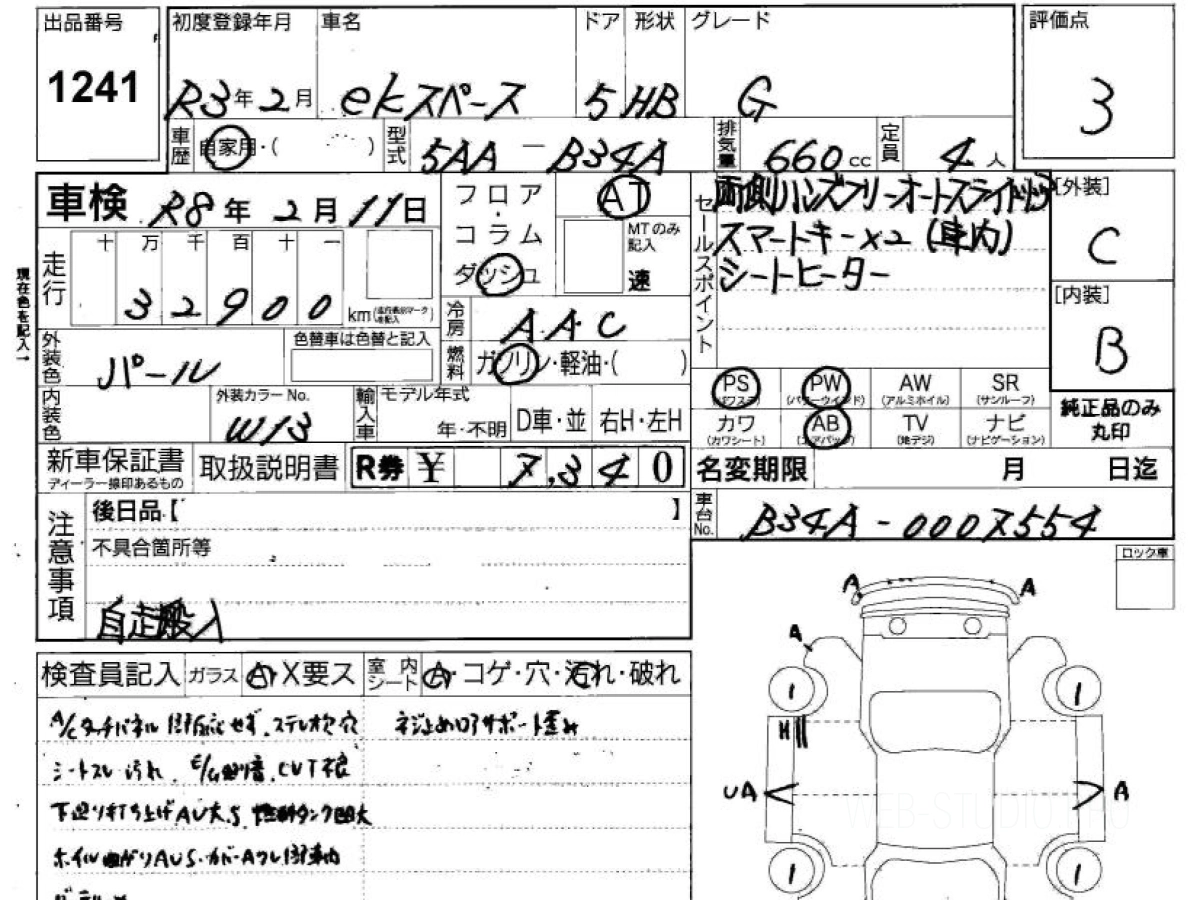 出品番号 初度登録年月 車名 ドア 形状 グレード 評価点
1241 R3年2月 ekスペース 5 HB G 3
車歴 自家用・( ) 型式 5AA-B34A 排気量 660cc 定員 4人
車検 R8年2月11日 フロア・コラム ダッシュ AT セールスポイント 両側ハンズフリーオートスライドドア [外装]
MTのみ記入 速 スマートキー×2 (車内) C
走行 十 万 千 百 十 一 シートヒーター
現在色を記入→ 32900 km [内装]
冷房 A.A.C B
外装色 パール 色替車は色替と記入 燃料 ガソリン・軽油・( )
PS (パワステ) PW (パワーウインド) AW (アルミホイル) SR (サンルーフ)
内装色 外装カラーNo. W13 輸入車 モデル年式 年・不明 D車・並 右H・左H
カワ (カワシート) AB (エアバッグ) TV (地デジ) ナビ (ナビゲーション) 純正品のみ丸印
新車保証書 ディーラー捺印あるもの 取扱説明書 R券 ¥ 7,340 名変期限 月 日迄
注意事項 後日品【 】 車台No. B34A-0007554
不具合箇所等 ロック車
自走搬入
A A
A
検査員記入 ガラス A・X要ス 室内シート A・コゲ・穴・汚れ・破れ
1 1
A/Cタッチパネル ステレオ穴 ネジ止め ロアサポート歪み
H
シートスレ汚れ、E/G CVT不良
UA A
下廻り打ち上げAU大、S 燃料タンク凹大
WEB-STUDIO.PRO
ホイル曲がりAUS・カバーA
1 1